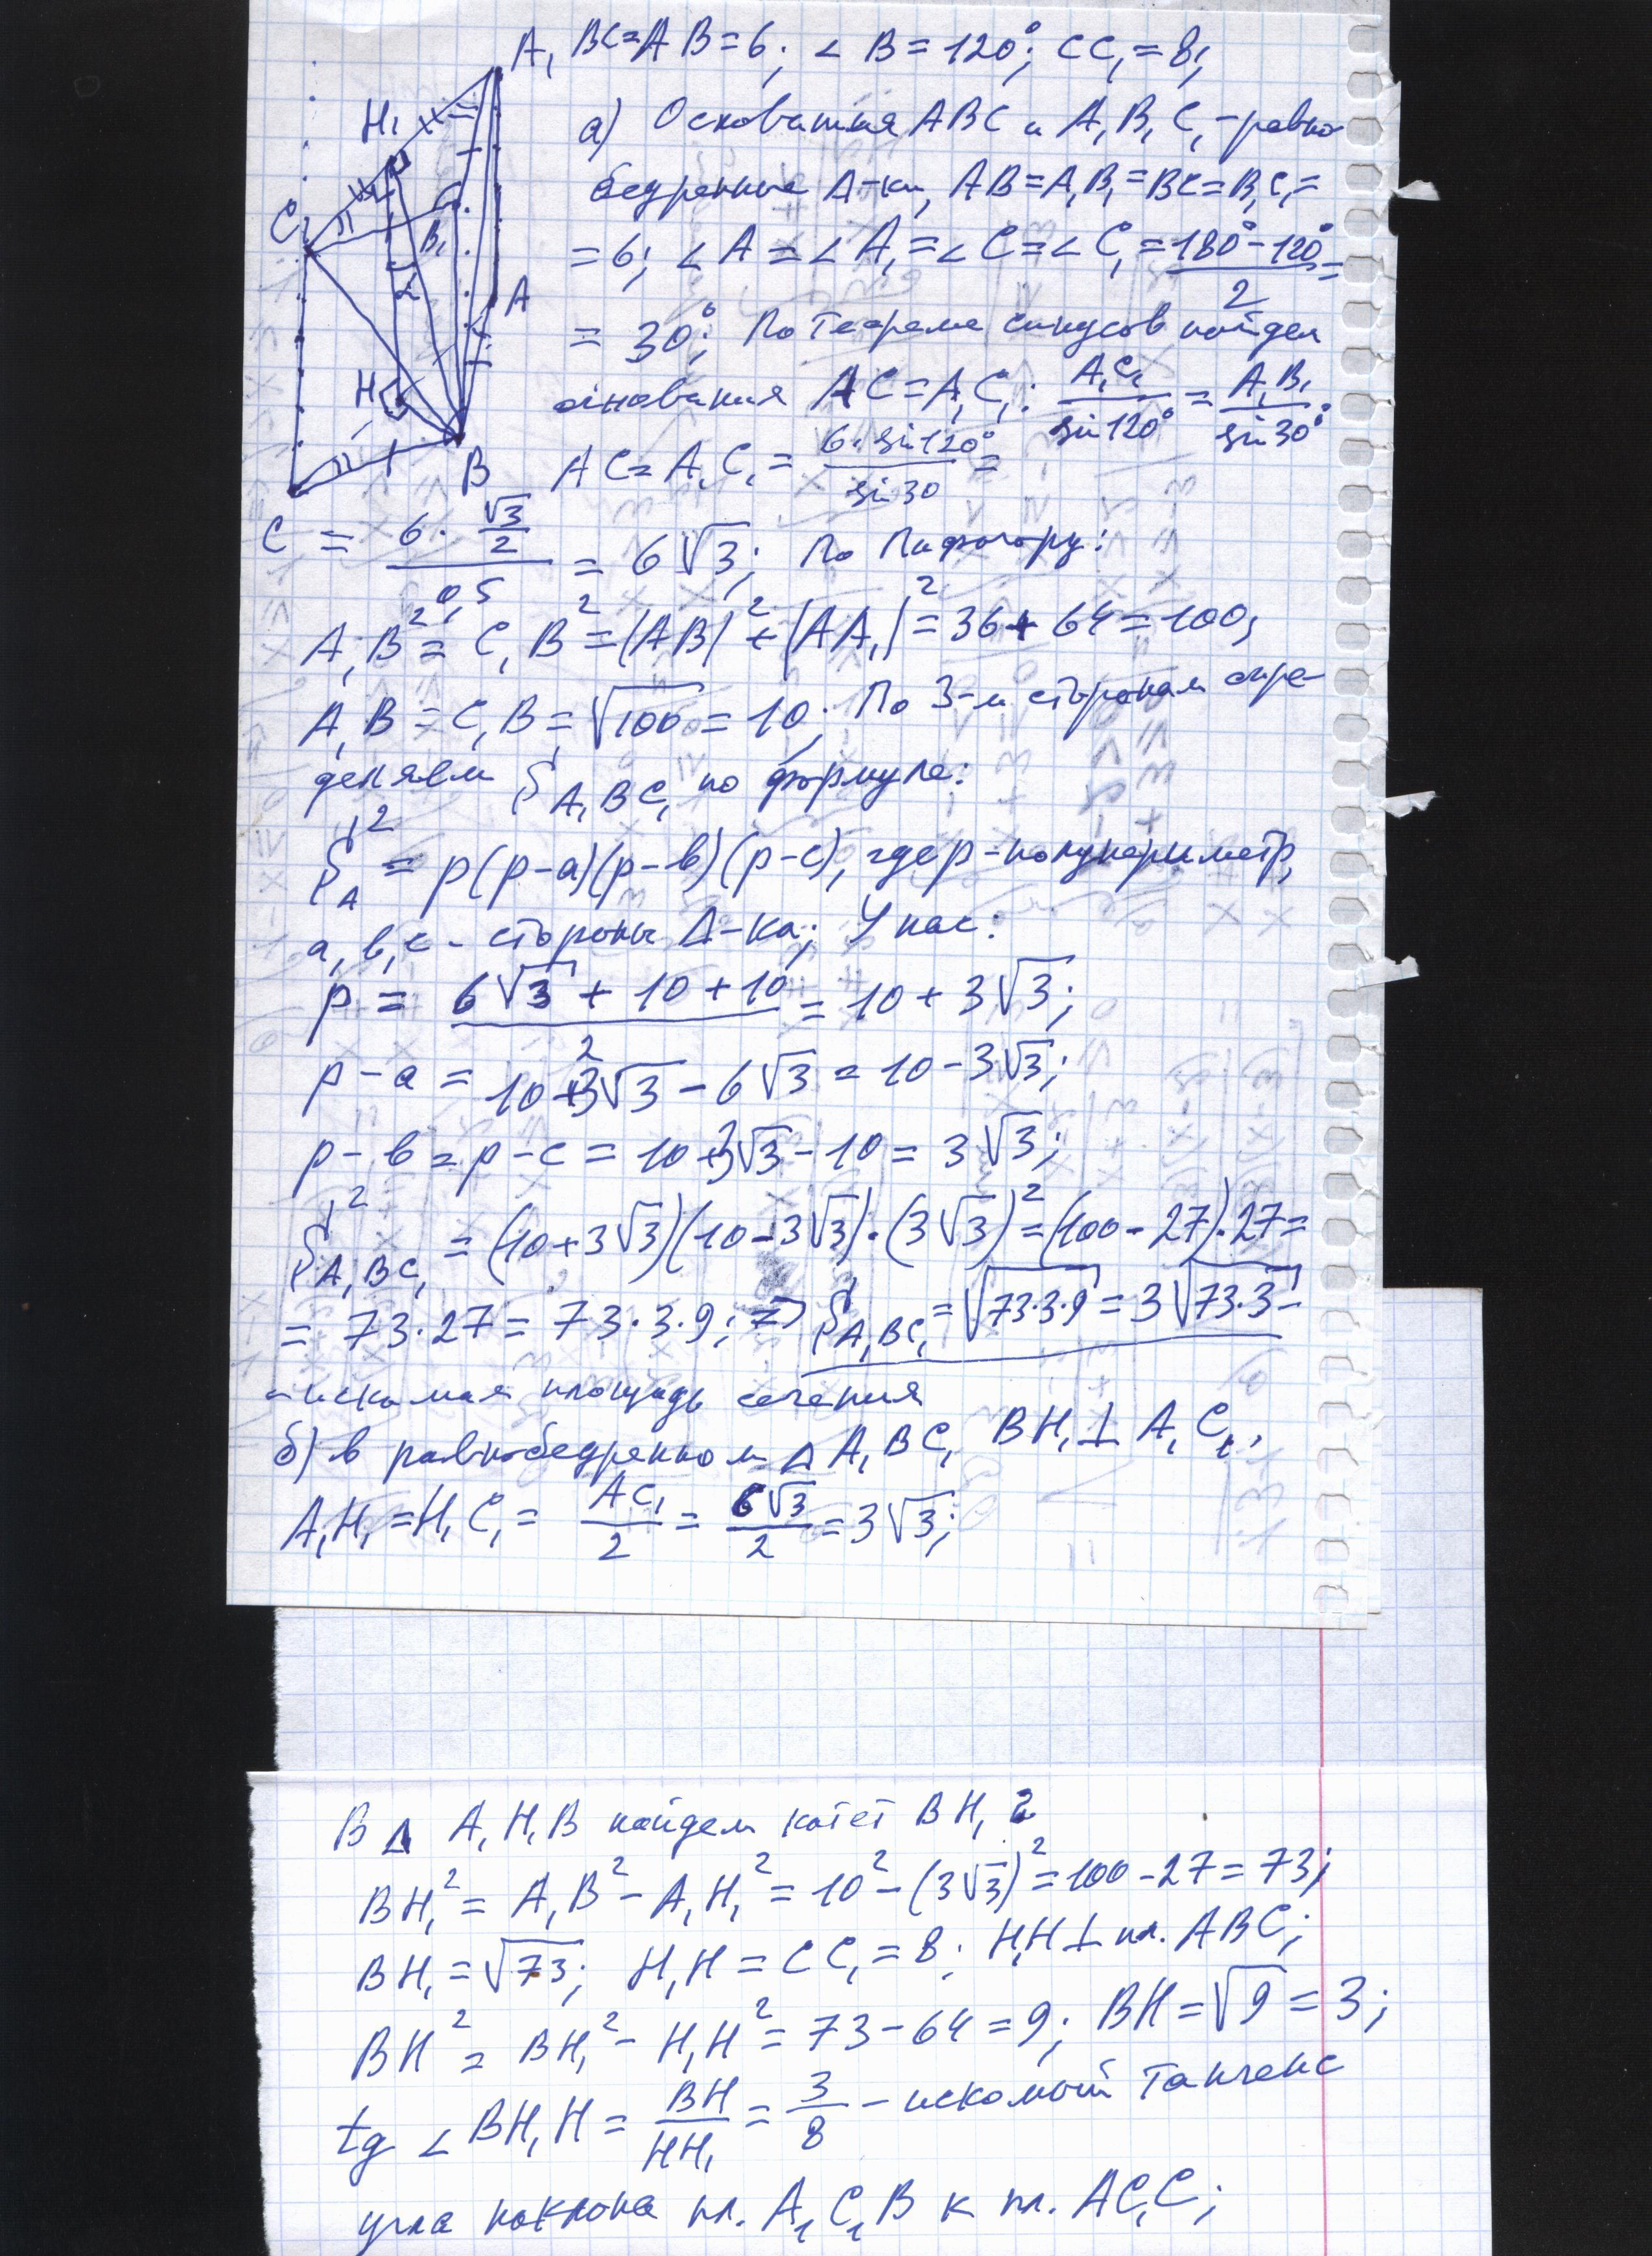 A₁ BC=AB=6; ∠B=120°; CC₁=8;
H₁
C₁
B₁
A
H
B
C
а) Основания ABC и A₁B₁C₁ - равно-
бедренные Δ-ки, AB=A₁B₁=BC=B₁C₁=
=6; ∠A=∠A₁=∠C=∠C₁=(180°-120°)/2=
=30°; По теореме синусов найдем
основания AC=A₁C₁: A₁C₁/sin120°=A₁B₁/sin30°
AC=A₁C₁=6·sin120°/sin30=
=(6·√3/2)/0,5=6√3; По Пифагору:
A₁B²=C₁B²=(AB)²+(AA₁)²=36+64=100;
A₁B=C₁B=√100=10; По 3-м сторонам опре-
деляем S A₁BC₁ по формуле:
S²Δ=p(p-a)(p-в)(p-c), где p-полупериметр,
a,в,c - стороны Δ-ка; У нас:
p=(6√3+10+10)/2=10+3√3;
p-a=10+3√3-6√3=10-3√3;
p-в=p-c=10+3√3-10=3√3;
S²A₁BC₁=(10+3√3)(10-3√3)·(3√3)²=(100-27)·27=
=73·27=73·3·9; => S A₁BC₁=√73·3·9=3√73·3 -
- искомая площадь сечения
б) в равнобедренном Δ A₁BC₁ BH₁⊥A₁C₁,
A₁H₁=H₁C₁=AC₁/2=6√3/2=3√3;
В Δ A₁H₁B найдем катет BH₁:
BH₁²=A₁B²-A₁H₁²=10²-(3√3)²=100-27=73;
BH₁=√73; H₁H=CC₁=8; H₁H⊥пл. ABC;
BH²=BH₁²-H₁H²=73-64=9; BH=√9=3;
tg∠BH₁H=BH/HH₁=3/8 - искомый тангенс
угла наклона пл. A₁C₁B к пл. AC₁C;